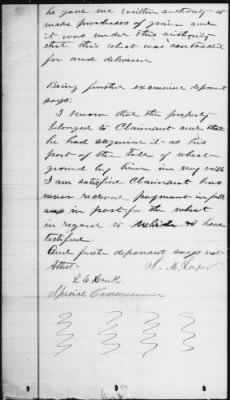 he gave me written authority to
make purchases of grain and
it was under this authority
that this wheat was contracted
for and delivered
Being further examined deponent
says:
I know that the property
belonged to Claimant and that
he had acquired it as his
part of the Toll of wheat
ground by him in my mill
I am satisfied Claimant has
never received payment in full
or in part for the wheat
in regard to which I have
testified.
And further deponent says not
Attest
Special Commissioner